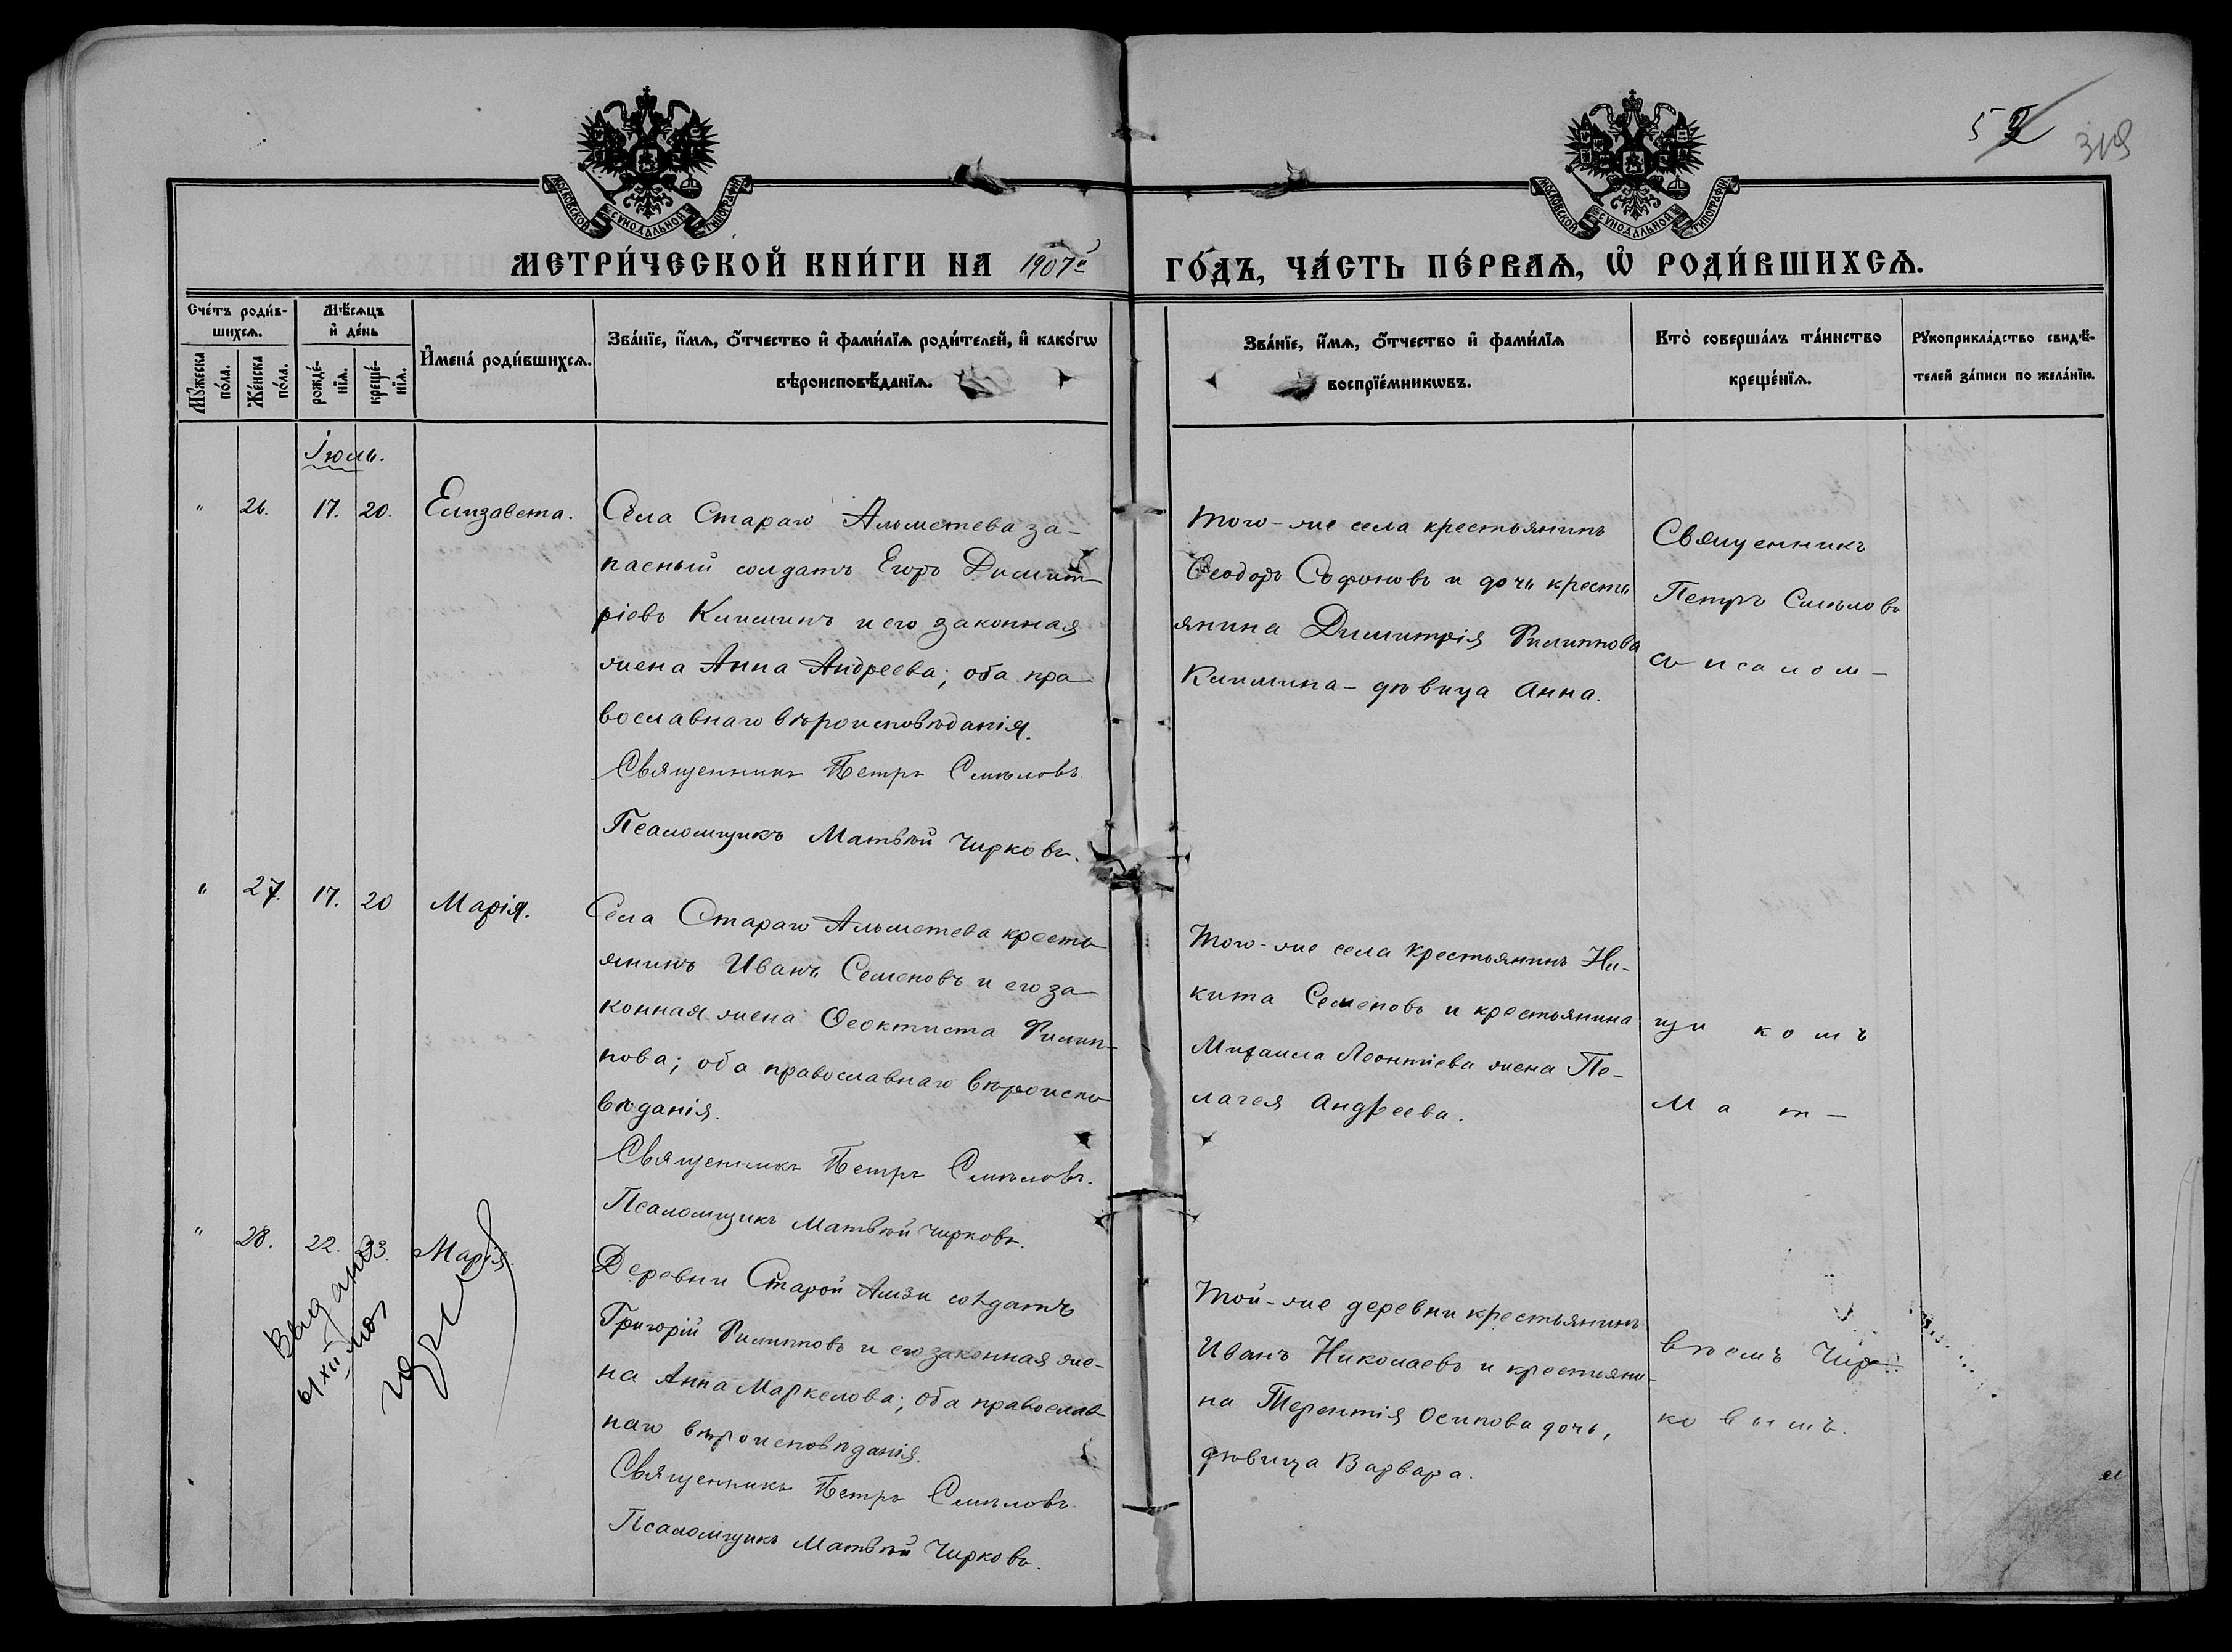 МОСКОВСКОЙ СѴНОДАЛЬНОЙ ТИПОГРАФІИ
МОСКОВСКОЙ СѴНОДАЛЬНОЙ ТИПОГРАФІИ
319
МЕТРИ́ЧЕСКОЙ КНИ́ГИ НА 1907й ГО́ДЪ, ЧА́СТЬ ПЕ́РВАѦ, Ѡ РОДИ́ВШИХСѦ.
Сче́тъ роди́в-
шихсѧ.
Мꙋ́жеска
по́ла.
Же́нска
по́ла.
Мѣ́сѧцъ
и҆ де́нь
рожде́-
нїѧ.
креще́-
нїѧ.
И҆мена̀ роди́вшихсѧ.
Зва́нїе, и҆́мѧ, ѻ҆́тчество и҆ фами́лїѧ роди́телей, и҆ како́гѡ
вѣроисповѣ́данїѧ.
Зва́нїе, и҆́мѧ, ѻ҆́тчество и҆ фами́лїѧ
воспрїе́мникѡвъ.
Кто̀ соверша́лъ та́инство
креще́нїѧ.
Рꙋкоприкла́дство свидѣ́-
телей за́писи по жела́нїю.
Іюль.
" 26. 17. 20. Елизавета.
Села Стараго Альметева за-
пасный солдатъ Егоръ Димит
ріевъ Климинъ и его законная
жена Анна Андреева; оба пра
вославнаго вѣроисповѣданія.
Священникъ Петръ Смѣловъ.
Псаломщикъ Матвѣй Чирковъ.
Того-же села крестьянинъ
Ѳеодоръ Софоновъ и дочь кресть
янина Димитрія Филиппова
Климина - дѣвица Анна.
Священникъ
Петръ Смѣловъ
съ псалом-
" 27. 17. 20 Марія.
Села Стараго Альметева кресть
янинъ Иванъ Семеновъ и его за
конная жена Ѳеоктиста Филип-
пова; оба православнаго вѣроиспо
вѣданія.
Священникъ Петръ Смѣловъ.
Псаломщикъ Матвѣй Чирковъ.
Того-же села крестьянинъ Ни-
кита Семеновъ и крестьянина
Михаила Леонтіева жена Пе-
лагея Андреева.
щикомъ
Мат-
" 28. 22. 23. Марія.
Деревни Старой Амзи солдатъ
Григорій Филипповъ и его законная же-
на Анна Маркелова; оба православ
наго вѣроисповѣданія.
Священникъ Петръ Смѣловъ.
Псаломщикъ Матвѣй Чирковъ.
Той-же деревни крестьянинъ
Иванъ Николаевъ и крестьяни-
на Терентія Осипова дочь,
дѣвица Варвара.
вѣемъ Чир-
ковымъ.
Выдана